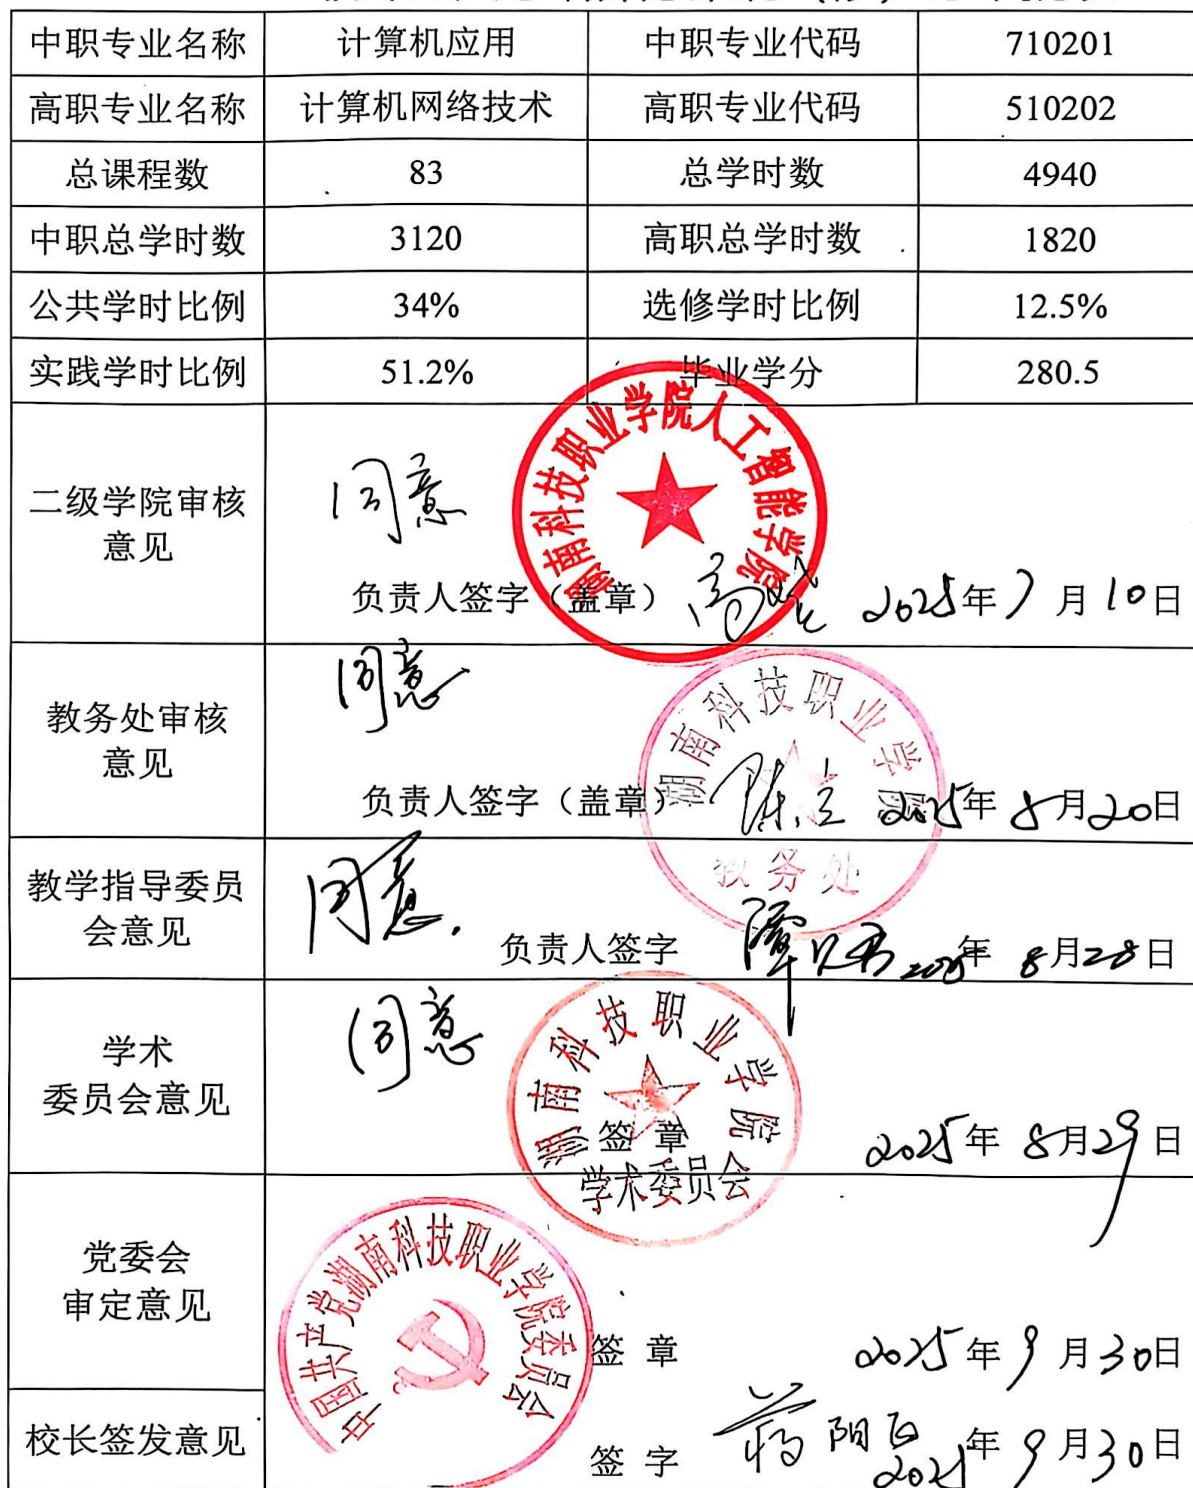 中职专业名称 计算机应用 中职专业代码 710201
高职专业名称 计算机网络技术 高职专业代码 510202
总课程数 83 总学时数 4940
中职总学时数 3120 高职总学时数 1820
公共学时比例 34% 选修学时比例 12.5%
实践学时比例 51.2% 毕业学分 280.5
湖南科技职业学院人工智能学院
二级学院审核
意见
同意
负责人签字（盖章） 2025年7月10日
同意
湖南科技职业学院
教务处审核
意见
负责人签字（盖章） 2025年8月20日
教务处
教学指导委员
会意见
同意.
负责人签字 2025年8月28日
同意
湖南科技职业学院
学术
委员会意见
签章 2025年8月29日
学术委员会
中国共产党湖南科技职业学院委员会
党委会
审定意见
签章 2025年9月30日
校长签发意见
签字 2025年9月30日